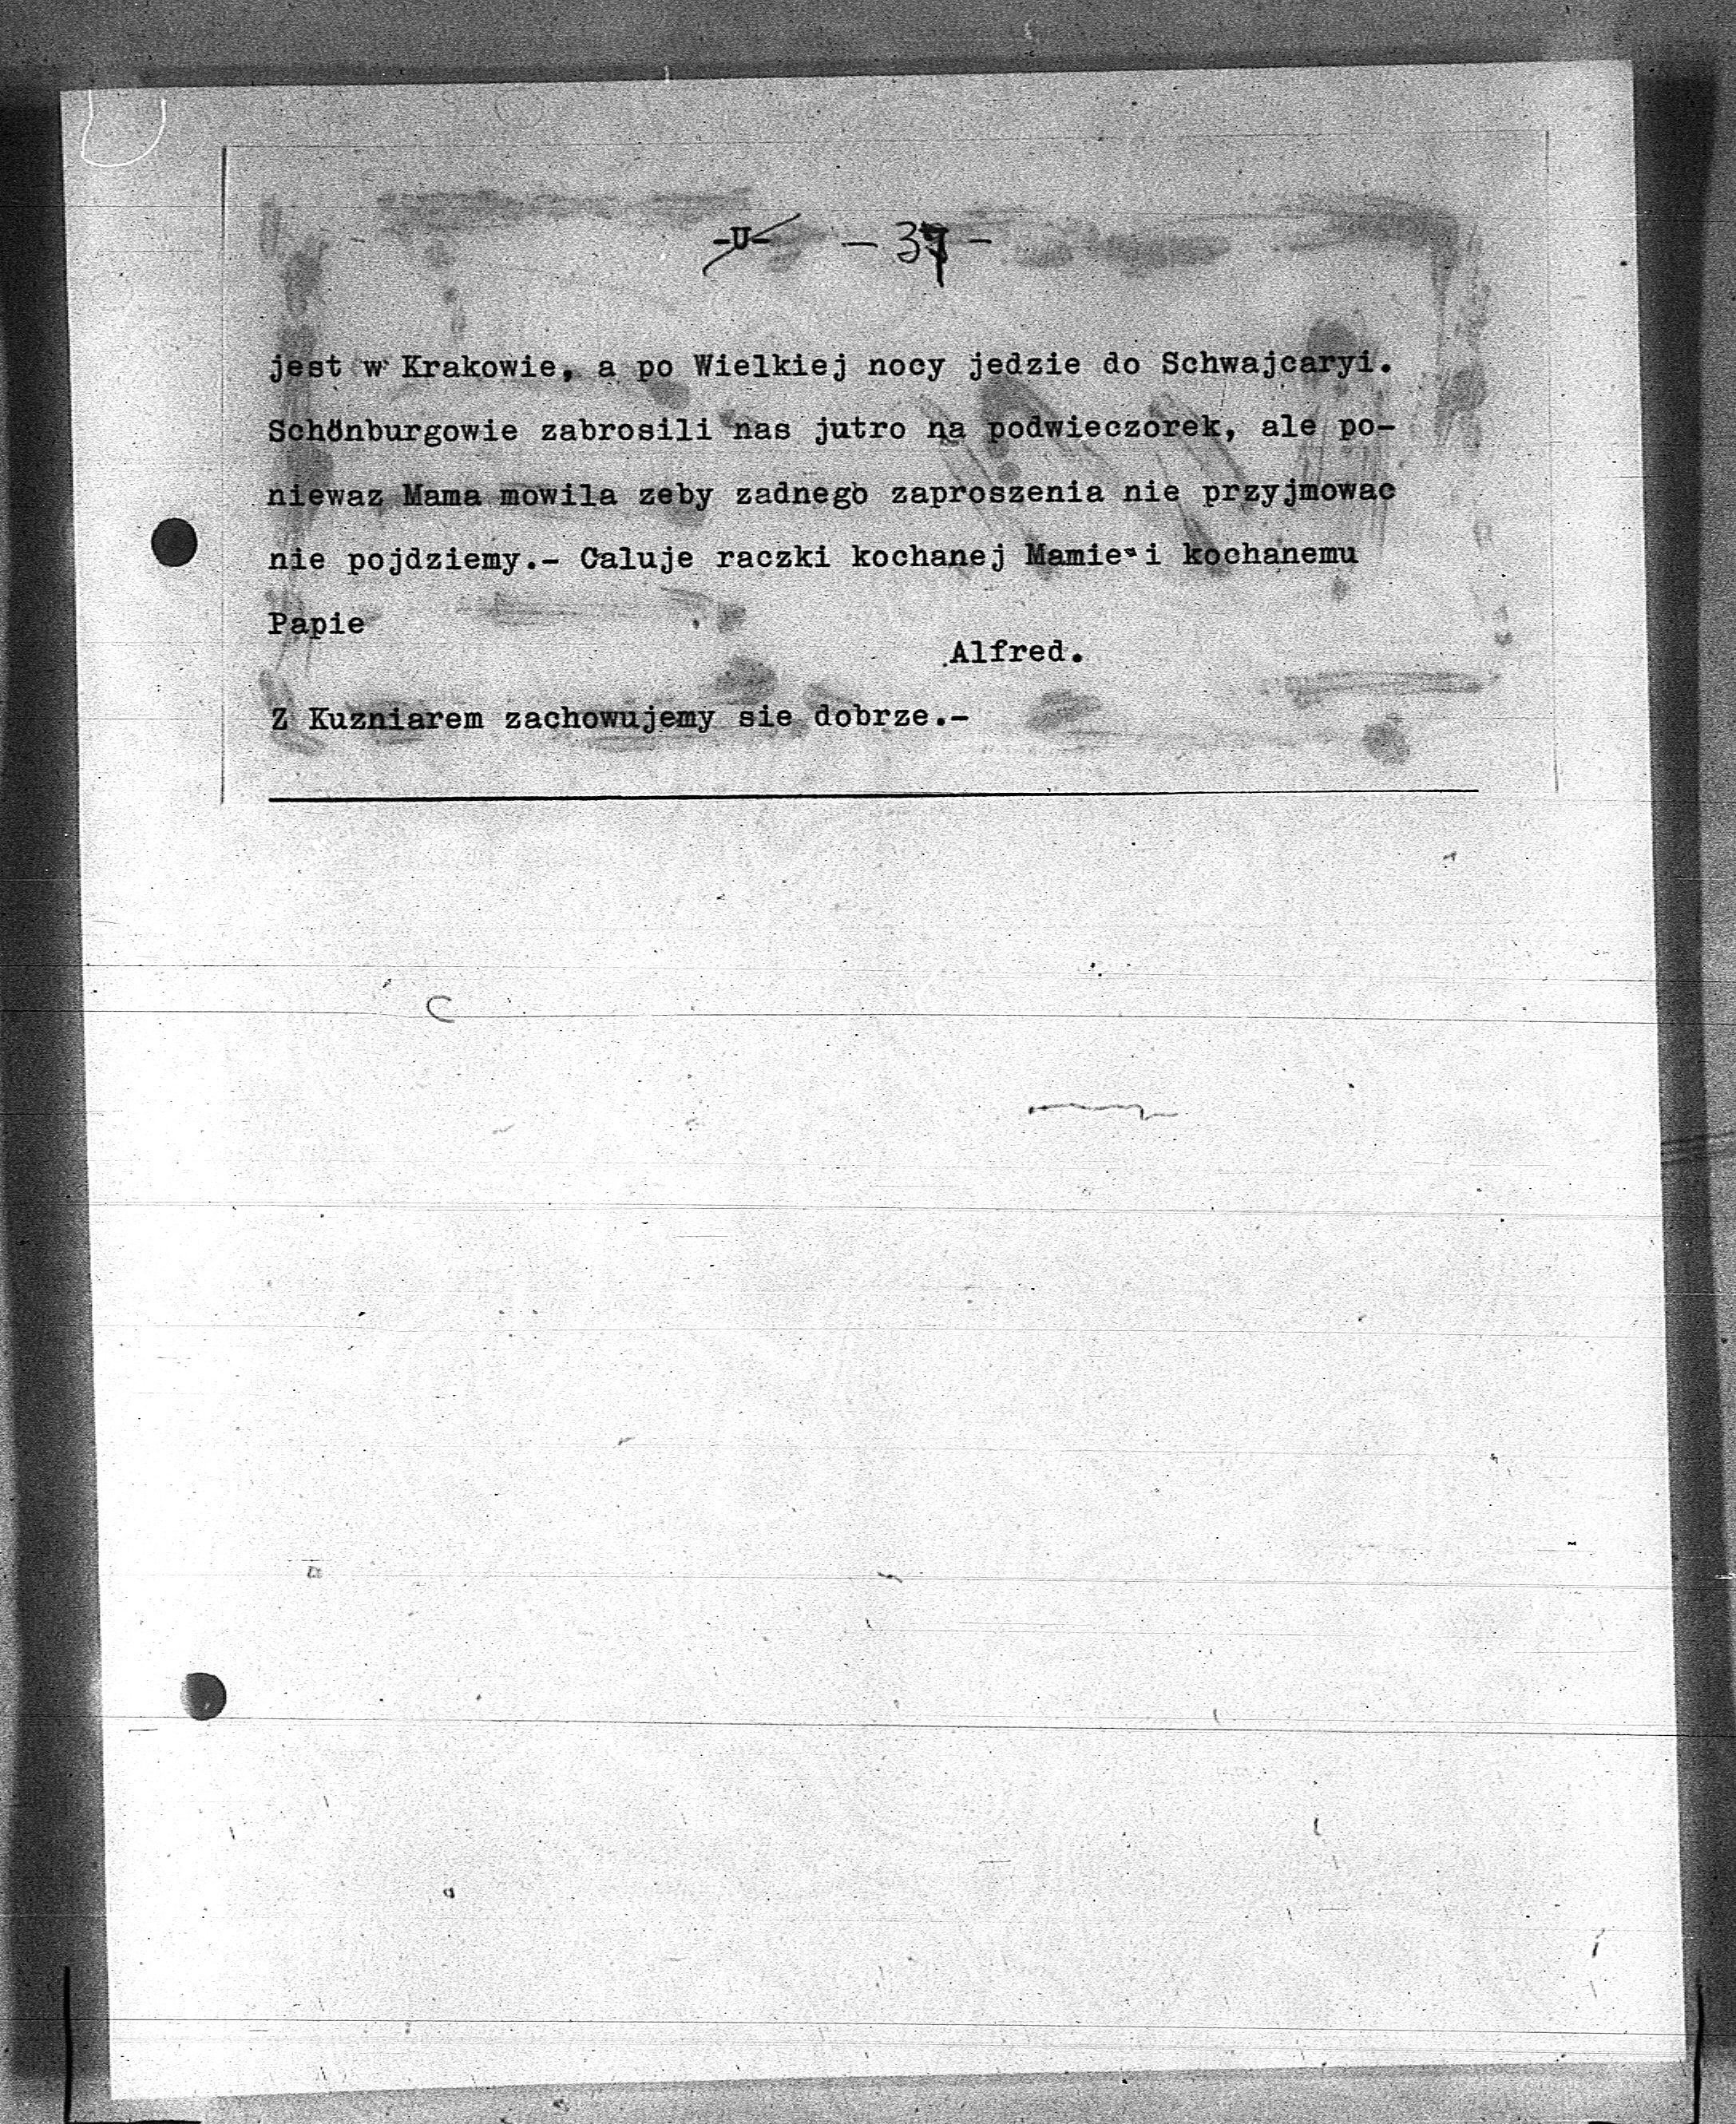 -U- - 37 -
jest w Krakowie, a po Wielkiej nocy jedzie do Schwajcaryi.
Schönburgowie zabrosili nas jutro na podwieczorek, ale po-
niewaz Mama mowila zeby zadnego zaproszenia nie przyjmowac
nie pojdziemy.- Caluje raczki kochanej Mamie i kochanemu
Papie
Alfred.
Z Kuzniarem zachowujemy sie dobrze.-